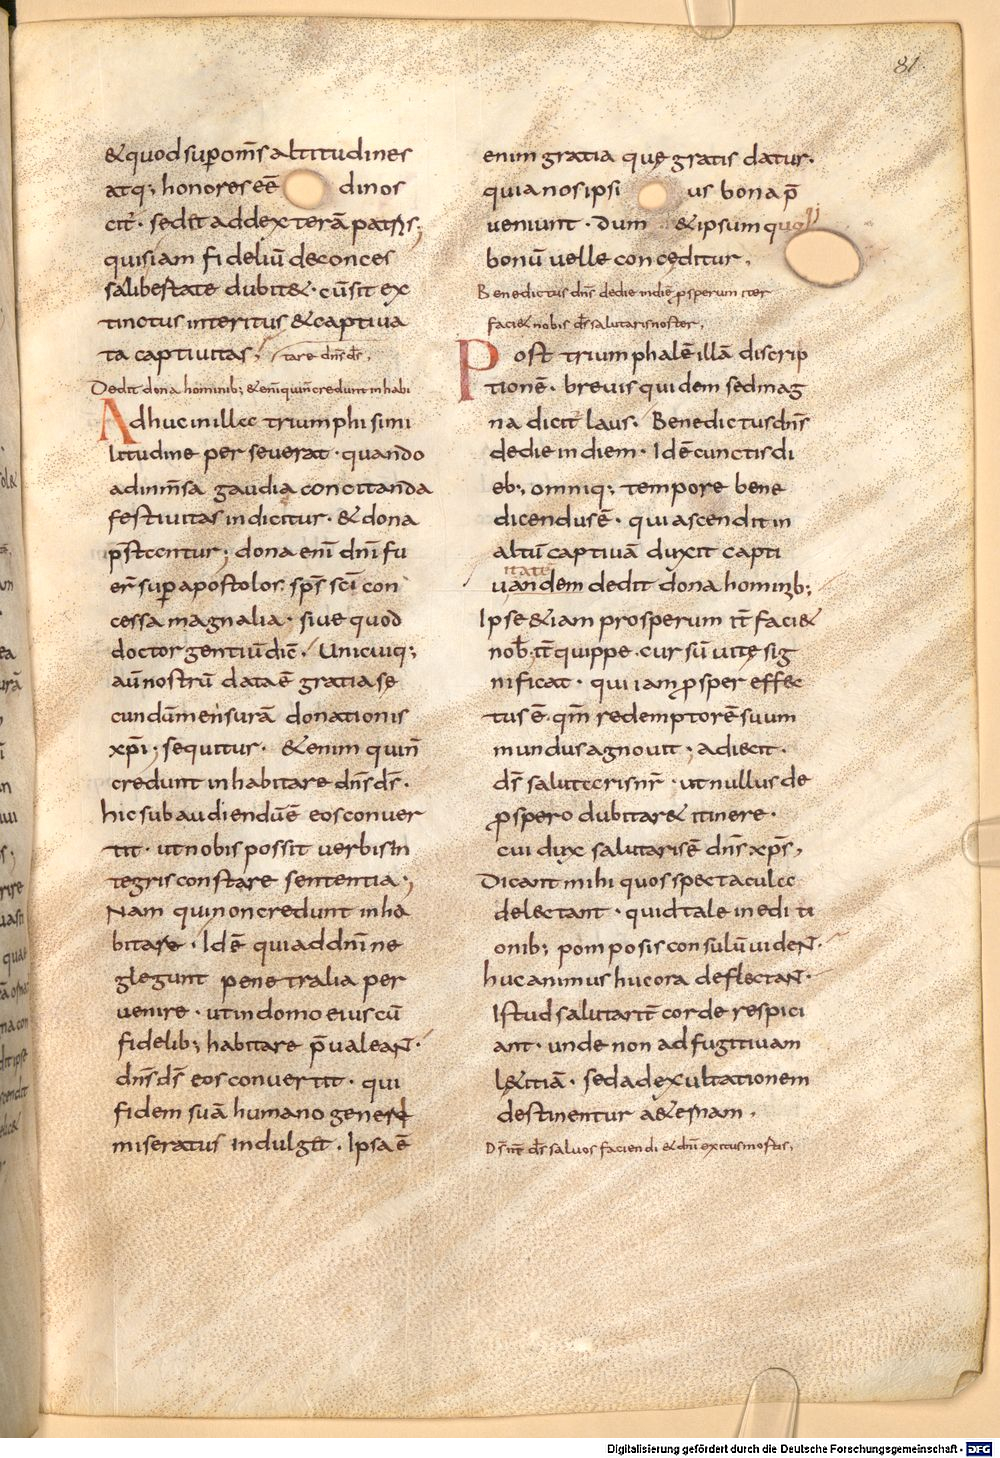 81
&quod sup om̅s altitudines
atq; honores ee̅ dinos
cit̅· sed&it ad dexteram patris;
quis iam fideliu̅ de conces
sa libestate dubit&· cu̅ sit ex
tinctus interitus & captiua
ta captiuitas;
tare dn̅s d̅s,
Dedit dona hominib; &eni̅ qui n̅ credunt inhabi
Adhuc in illec triumphi simi
litudine perseuerat· quando
ad inm̅sa gaudia concitanda
festiuitas indicitur· & dona
p̅stentur; dona eni̅ dn̅i fu
er̅ sup apostolos: sp̅s sc̅i con
cessa magnalia· siue quod
doctor gentiu̅ dic̅. Unicuiq;
au̅ nostru̅ data e̅ gratia se
cundu̅ mensura̅ donationis
xp̅i; sequitur· &enim qui n̅
credunt inhabitare dn̅s d̅s·
hic subaudiendu̅ e̅ eos conuer
tit· ut nobis possit uerbis in
tegris constare sententia;
Nam qui non credunt inha
bitare· Id e̅ qui ad dn̅i ne
glegunt penetralia per
uenire· ut in domo eius cu̅
fidelib; habitare p̅ualeant·
dn̅s d̅s eos conuertit· qui
fidem sua̅ humano generi
miseratus indulg&it. Ipsa e̅
enim gratia quę gratis datur·
quia nos ipsi us bona p̅
ueniunt· Dum & ipsum
bonu̅ uelle conceditur,
Benedictus dn̅s de die in die̅ prosperum iter
faci& nobis d̅s salutaris noster,
Post triumphale̅ illa̅ discrip
tione̅· breuis quidem sed mag
na dicit laus. Benedictus dn̅s
de die in diem· Id e̅ cunctis di
eb;, omniq; tempore bene
dicendus e̅· qui ascendit in
altu̅ captiua̅ duxit capti
itate̅
uandem dedit dona hominib;
Ipse &iam prosperum it̅ faci&
nob̅· it̅ quippe· cursu̅ uitę sig
nificat· qui iam psper effec
tus e̅· qm̅ redemptore̅ suum
mundus agnouit; adiecit·
d̅s salutaris nr̅· ut nullus de
pspero dubitar& itinere·
cui dux salutaris e̅ dn̅s xp̅s,
Dicant mihi quos spectacula
delectant· quid tale in editi
onib; pomposis consulu̅ uident·
huc animus huc ora deflectant·
Istud salutarit̅ corde respici
ant· unde non ad fugitiuam
l&itia̅· sed ad exultationem
destinentur a&ernam.
D̅s nr̅ d̅s saluos faciendi & dn̅i exitus mortis,
Digitalisierung gefördert durch die Deutsche Forschungsgemeinschaft · DFG